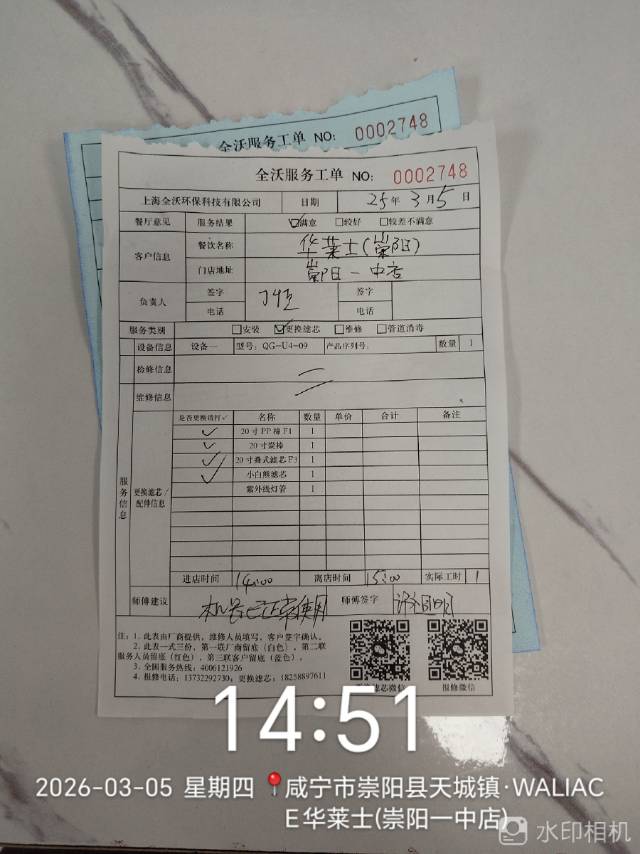 全沃服务工单 NO: 0002748
全沃服务工单 NO: 0002748
上海全沃环保科技有限公司 日期 25年 3月 5日
餐厅意见 服务结果 ☑满意 □较好 □较差不满意
客户信息 餐饮名称 华莱士(崇阳)
门店地址 崇阳一中店
负责人 签字 签字
电话 电话
服务类别 □安装 ☑更换滤芯 □维修 □管道消毒
设备信息 设备一 型号: QG-U4-09 产品序列号: 数量 1
检修信息
维修信息
服务信息 更换滤芯/配件信息
是否更换请打✓ 名称 数量 单价 合计 备注
✓ 20寸PP棉F1 1
✓ 20寸炭棒 1
✓ 20寸叠式滤芯F3 1
✓ 小白熊滤芯 1
紫外线灯管 1
进店时间 14:00 离店时间 15:00 实际工时 1
师傅建议 机器已正常使用 师傅签字
注: 1. 此表由厂商提供, 维修人员填写, 客户签字确认。
2. 此表一式三份, 第一联厂商留底(白色), 第二联
服务人员留底(红色), 第三联客户留底(蓝色)。
3. 全国服务热线: 4006121926
4. 报修电话: 13732292730; 更换滤芯: 18258897611
报修微信
14:51
2026-03-05 星期四 咸宁市崇阳县天城镇·WALIAC
E华莱士(崇阳一中店)
水印相机